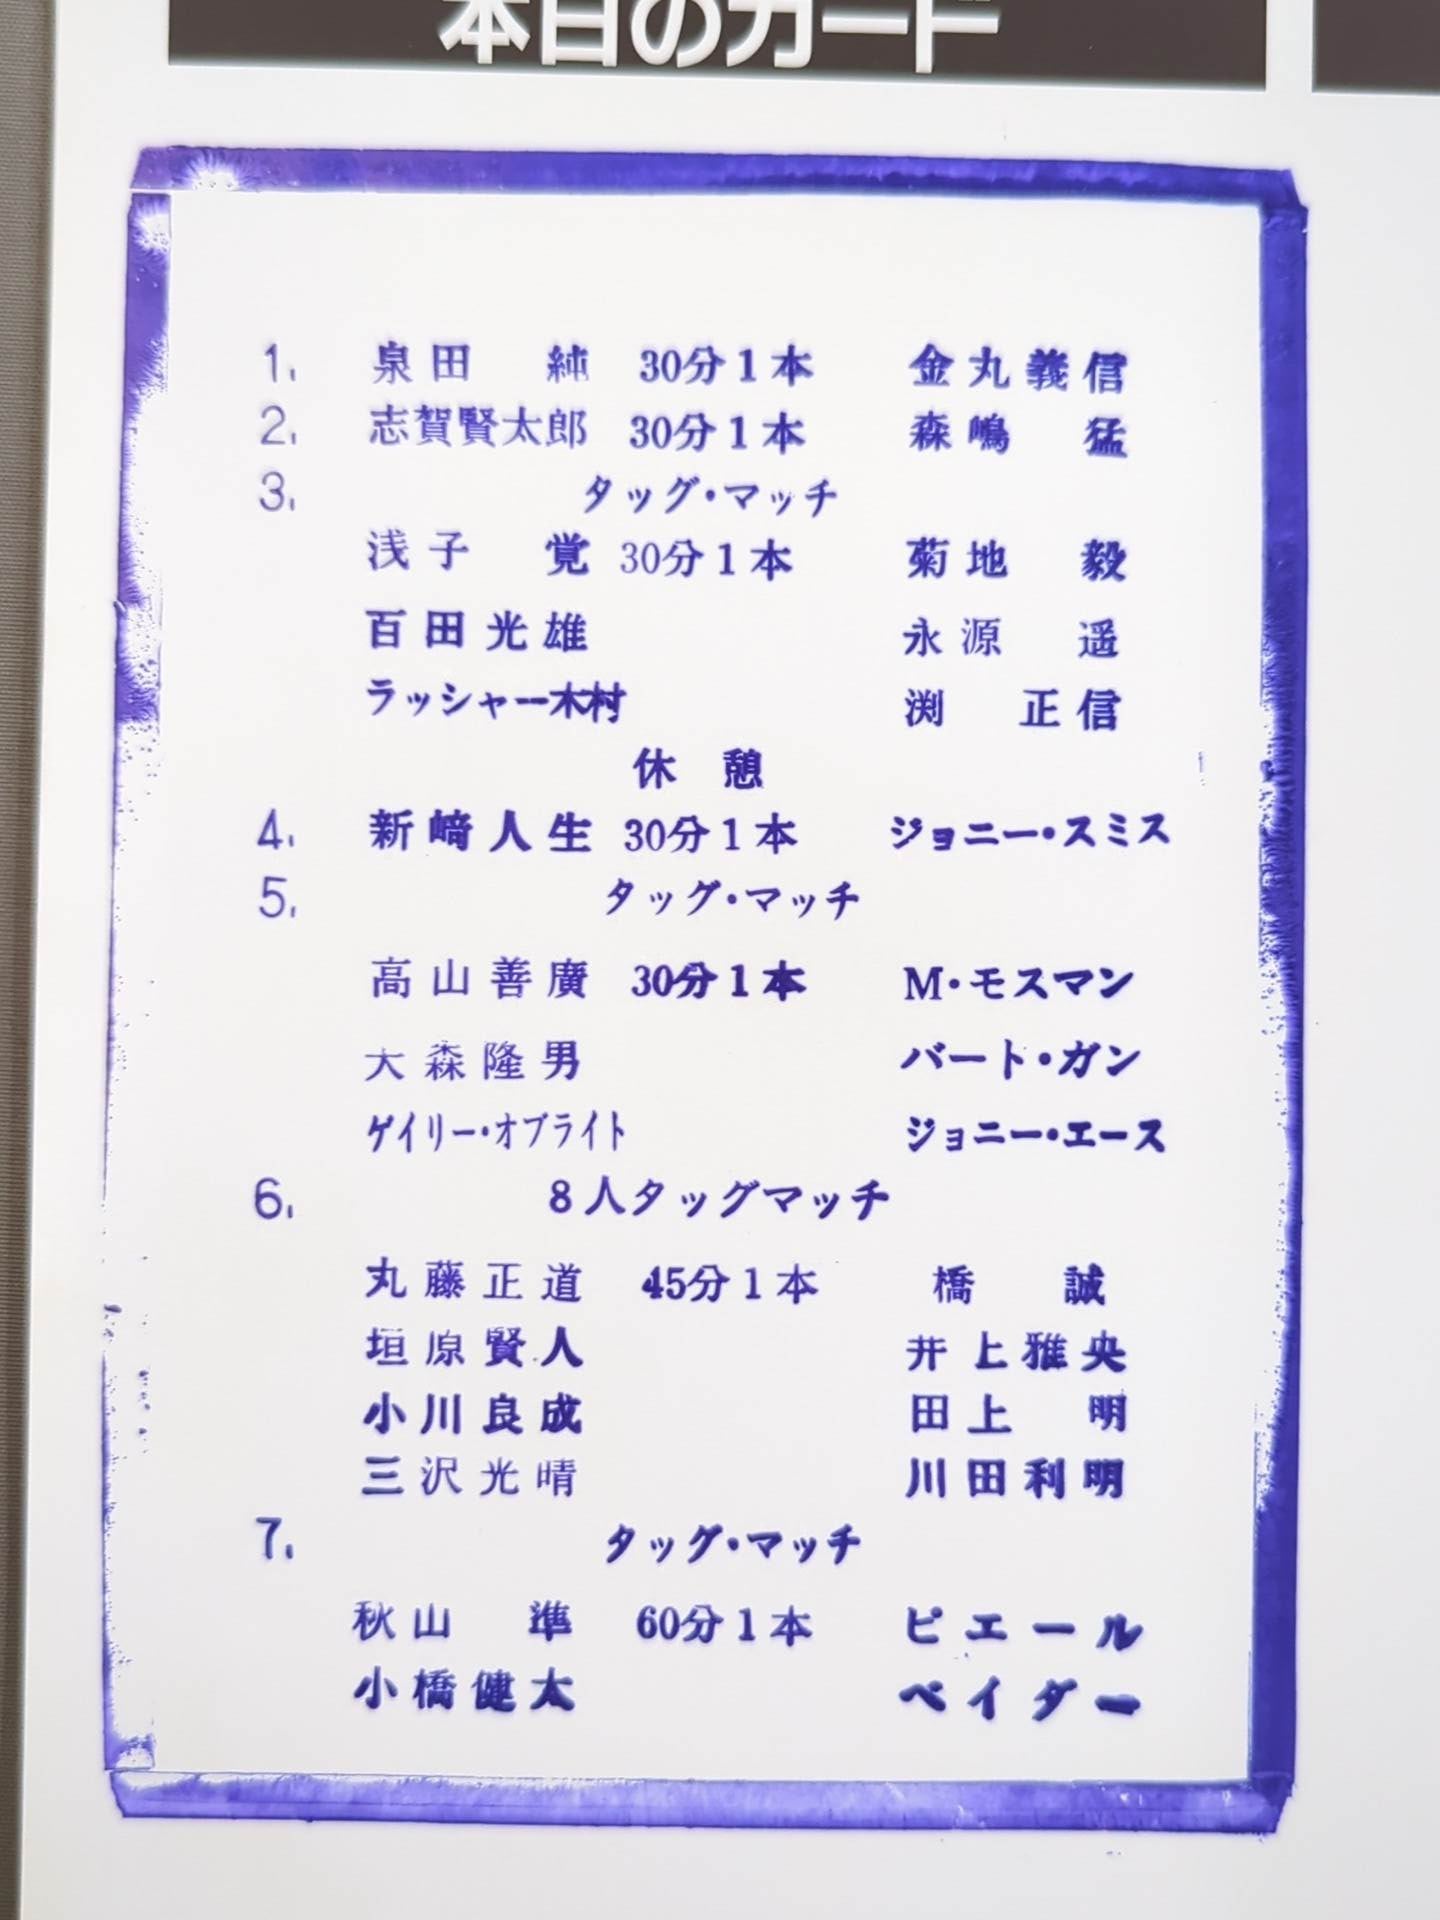 本日のカード
1. 泉田 純 30分1本 金丸義信
2. 志賀賢太郎 30分1本 森嶋 猛
3. タッグ・マッチ
浅子 覚 30分1本 菊地 毅
百田光雄 永源 遥
ラッシャー木村 渕 正信
休憩
4. 新崎人生 30分1本 ジョニー・スミス
5. タッグ・マッチ
高山善廣 30分1本 M・モスマン
大森隆男 バート・ガン
ゲイリー・オブライト ジョニー・エース
6. 8人タッグマッチ
丸藤正道 45分1本 橋 誠
垣原賢人 井上雅央
小川良成 田上 明
三沢光晴 川田利明
7. タッグ・マッチ
秋山 準 60分1本 ピエール
小橋健太 ベイダー